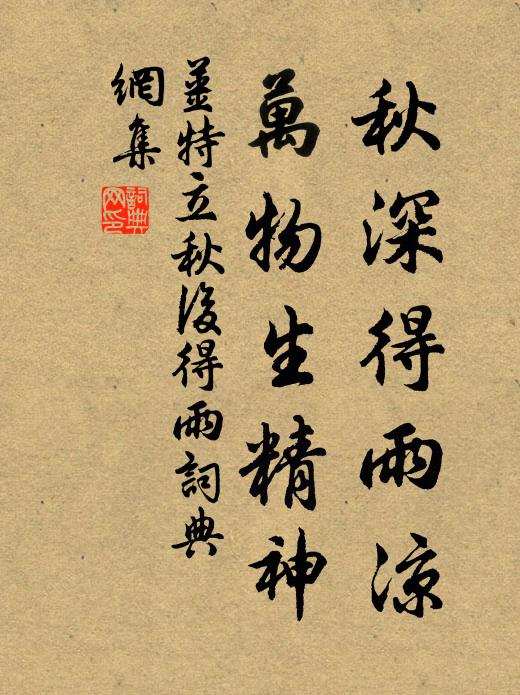 秋深得雨凉
萬物生精神
姜特立秋後得雨詞典
網集
詞典
网印